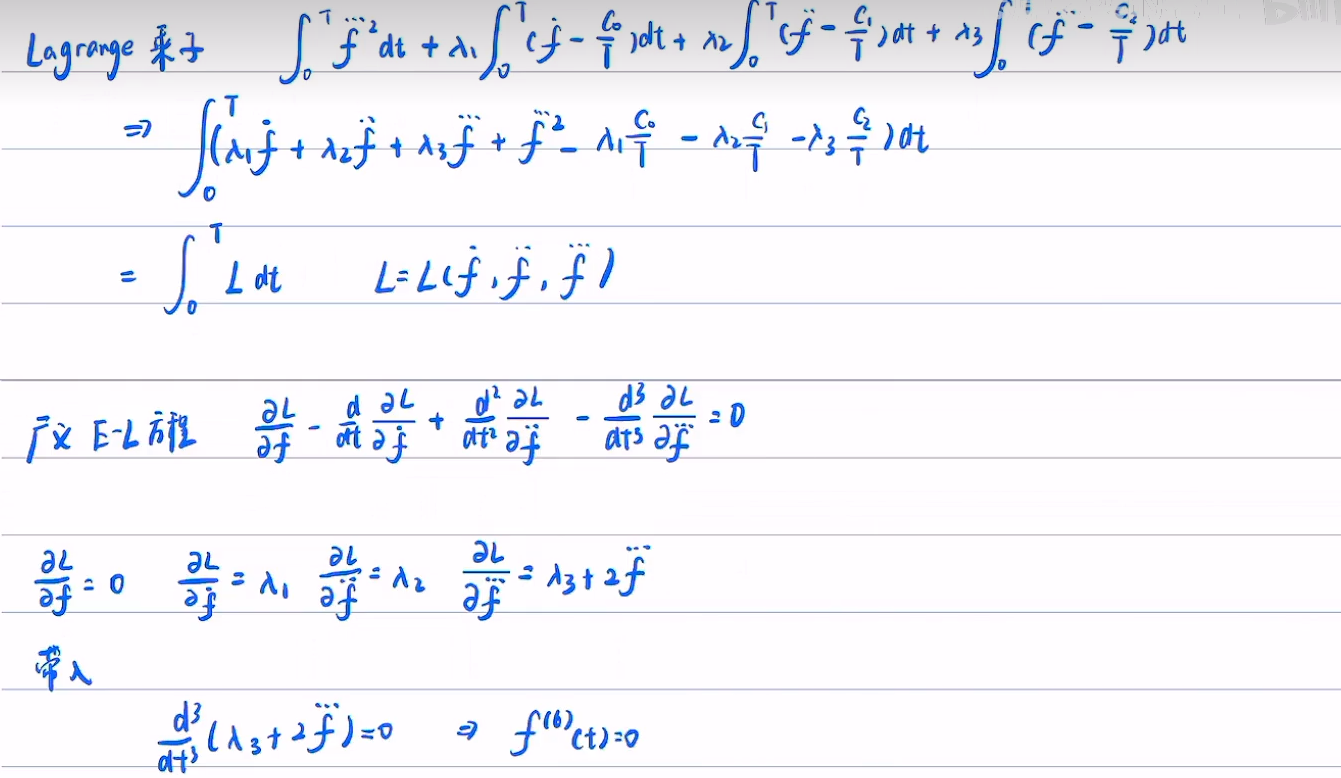 Lagrange 乘子 ∫₀ᵀ f⃛² dt + λ₁∫₀ᵀ(ḟ - C₀/T)dt + λ₂∫₀ᵀ(f̈ - C₁/T)dt + λ₃∫₀ (f⃛ - C₂/T)dt
⇒ ∫₀ᵀ(λ₁ḟ + λ₂f̈ + λ₃f⃛ + f⃛² - λ₁C₀/T - λ₂C₁/T - λ₃C₂/T)dt
= ∫₀ᵀ L dt L = L(ḟ, f̈, f⃛)
广义 E-L 方程 ∂L/∂f - d/dt ∂L/∂ḟ + d²/dt² ∂L/∂f̈ - d³/dt³ ∂L/∂f⃛ = 0
∂L/∂f = 0 ∂L/∂ḟ = λ₁ ∂L/∂f̈ = λ₂ ∂L/∂f⃛ = λ₃ + 2f⃛
带入
d³/dt³(λ₃ + 2f⃛) = 0 ⇒ f⁽⁶⁾(t) = 0